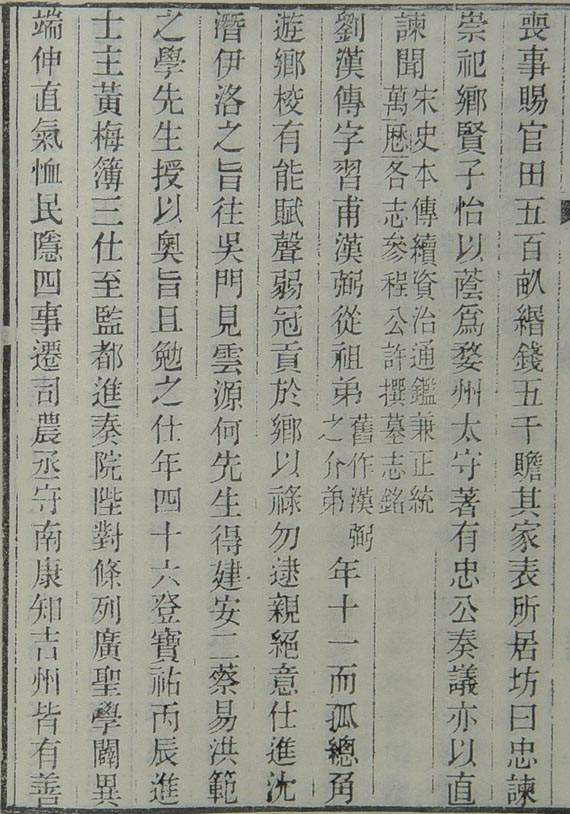 喪事賜官田五百畝緡錢五千贍其家表所居坊曰忠諫
崇祀鄉賢子怡以蔭爲婺州太守著有忠公奏議亦以直
諫聞宋史本傳續資治通鑑兼正統萬厯各志參程公許撰墓志銘
劉漢傳字習甫漢弼從祖弟舊作漢弼之介弟年十一而孤總角
遊鄉校有能賦聲弱冠貢於鄉以祿勿逮親絕意仕進沈
潛伊洛之旨往吳門見雲源何先生得建安二蔡易洪範
之學先生授以奧旨且勉之仕年四十六登寶祐丙辰進
士主黃梅簿三仕至監都進奏院陛對條列廣聖學闢異
端伸直氣恤民隱四事遷司農丞守南康知吉州皆有善